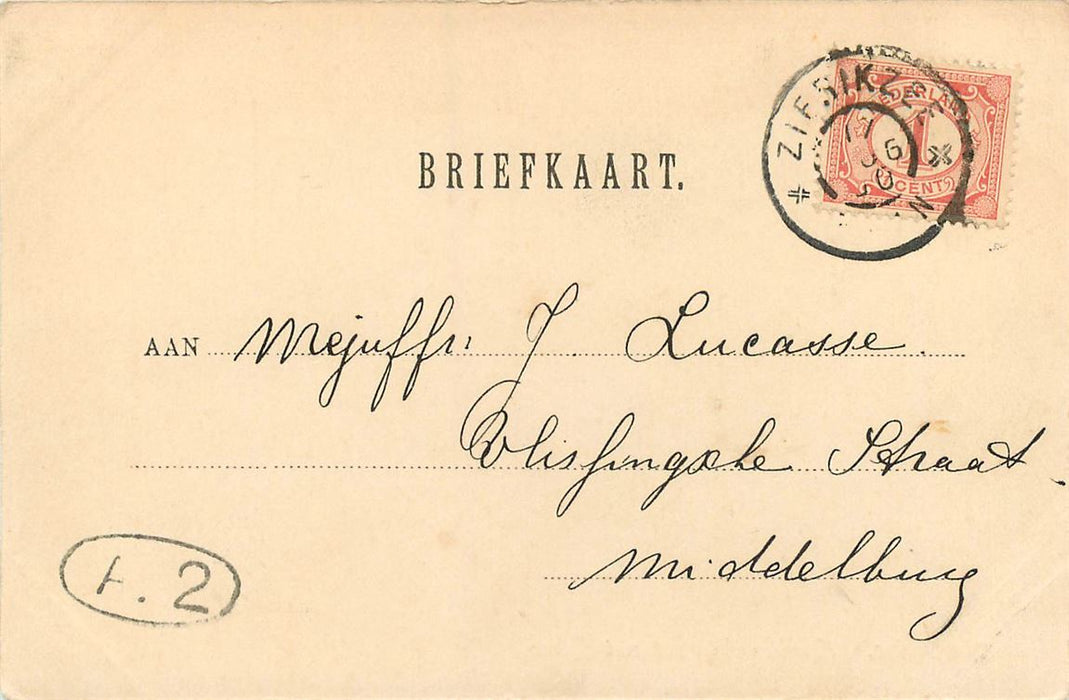 BRIEFKAART.
ZIERIKZEE
NEDERLAND
1
CENT
AAN Mejuffr: J. Lucasse
Vlissingsche Straat
Middelburg
A. 2